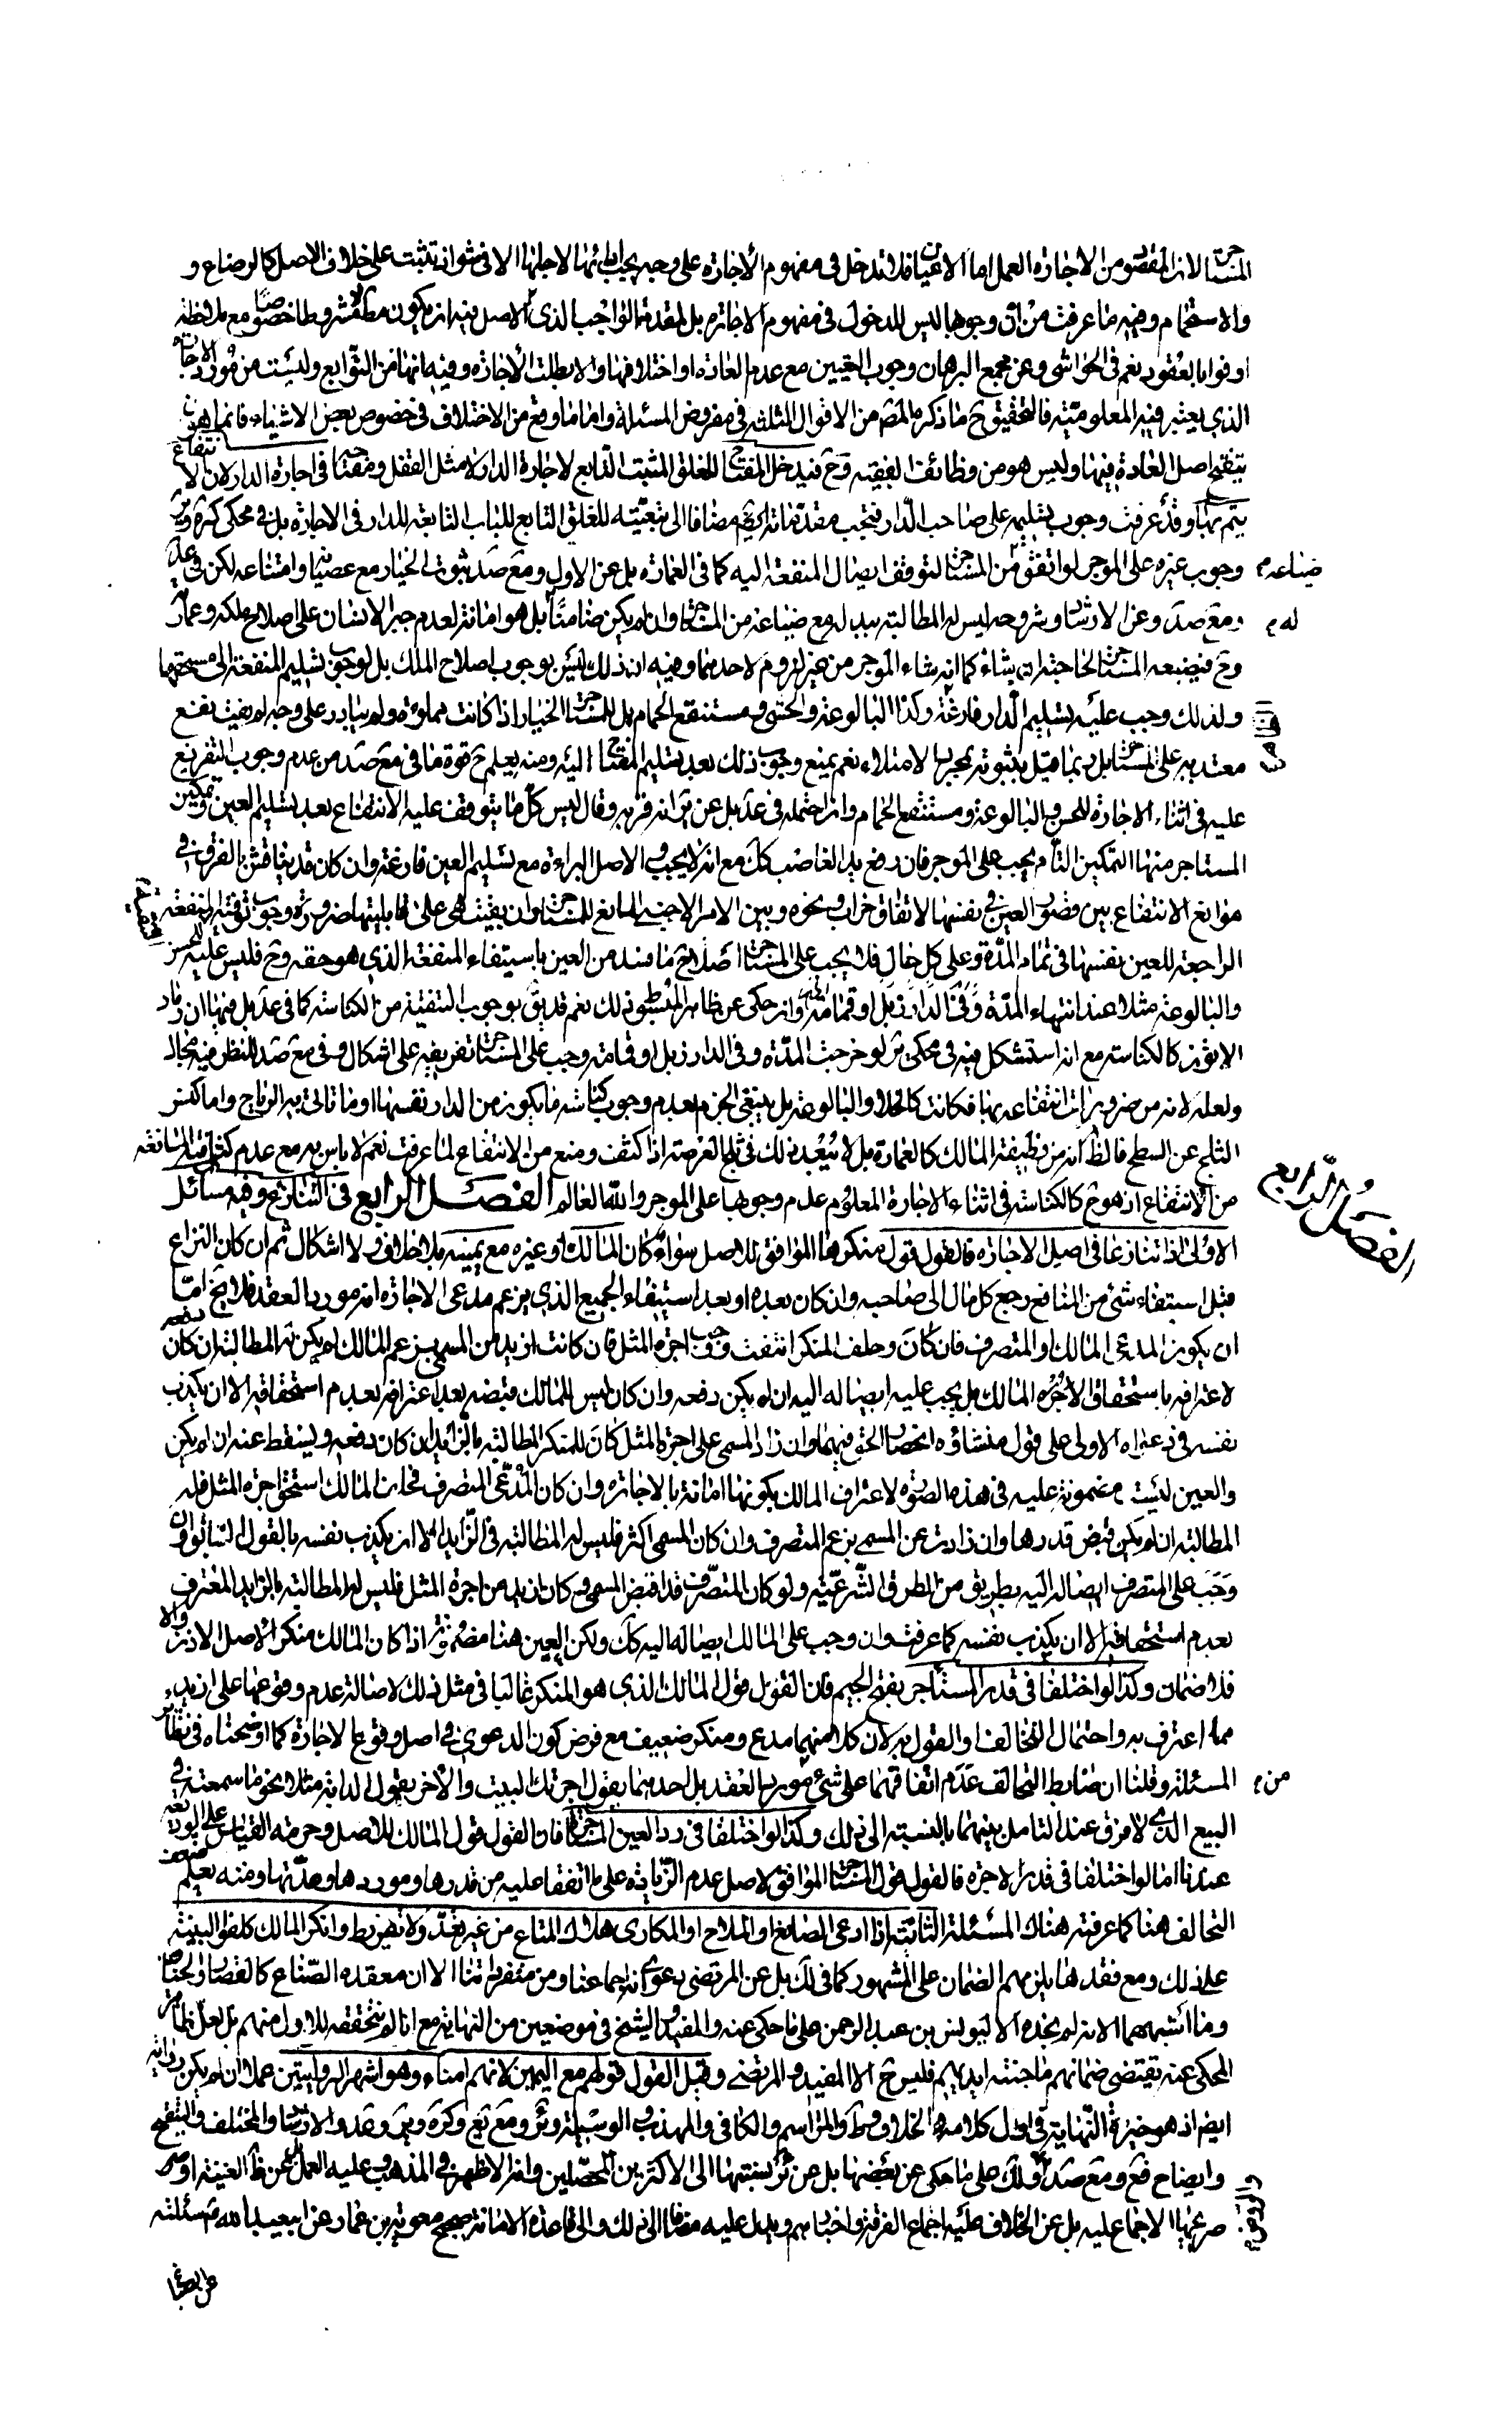 المستاجر لان المقصود من الاجارة العمل اما الاعيان فلا تدخل في مفهوم الاجارة على وجه يجب اعطائها لاجلها الا في مواضع تثبت على خلاف الاصل كالرضاع و
والاستحمام وفيه ما عرفت من ان وجوبها ليس للدخول في مفهوم الاجارة بل لمقدمة الواجب الذي الاصل فيه ان يكون مطلقا لا مشروطا خصوصا مع ملاحظة
اوفوا بالعقود نعم في الحواشي وعن مجمع البرهان وجوب التعيين مع عدم العادة او اختلافها والا بطلت الاجارة وفيه انها من التوابع وليست من مورد الاجارة
الذي يعتبر فيه المعلومية فالتحقيق ح ما ذكره المص من الاقوال الثلثة في مفروض المسئلة واما ما وقع من الاختلاف في خصوص بعض الاشياء فانما هو
يتنقيح اصل العادة فيها وليس هو من وظائف الفقيه وح فيدخل المفتاح للغلق المثبت التابع لاجارة الدار لا مثل القفل ومفتاحه في اجارة الدار لان الانتفاع
يتم بها وقد عرفت وجوب تسليمه على صاحب الدار فتجب مقدماته مضافا الى تبعيته للغلق التابع للباب التابعة للدار في الاجارة بل في محكي كره
وجوب غيره على الموجر لو اتفق ضياعه من المستاجر لتوقف ايصال المنفعة اليه كما في العمارة بل عن الاول ومع صد ثبوت الخيار مع عصيانه وامتناعه لكن في عد
ومع صد وعن الارشاد وشروحه ليس له المطالبة ببدله مع ضياعه من المستاجر وان لم يكن ضامنا له بل هو امانة لعدم جبر الانسان على اصلاح ملكه وعمارته
وح فيضعه المستاجر لحاجته ان شاء كما انه شاء الموجر من غير لزوم لاحدهما وفيه ان ذلك ليس لوجوب اصلاح الملك بل لوجوب تسليم المنفعة الى مستحقها
ولذلك وجب عليه تسليم الدار فارغة وكذا البالوعة والحش ومستنقع الحمام بل للمستاجر الخيار اذا كانت مملوءة ولم يبادر على وجه لم يفت نفع
معتد به على المستاجر بل ربما قيل بثبوته بمجرد الامتلاء نعم يمنع وجوب ذلك بعد تسليم المفتاح اليه ومنه يعلم ح قوة ما في مع صد من عدم وجوب التفريغ
عليه في اثناء الاجارة للحش والبالوعة ومستنقع الحمام وان احتمله في عد بل عن انه قربه وقال ليس كل ما يتوقف عليه الانتفاع بعد تسليم العين وتمكين
المستاجر منها التمكين التام يجب على الموجر فان رفع يد الغاصب كك مع انه لا يجب والاصل البراءة مع تسليم العين فارغة وان كان قد يناقش بالفرق في
موانع الانتفاع بين قصور العين في نفسها لاتفاق خراب ونحوه وبين الامر الاجنبي المانع للمستاجر وان بقيت هي على قابليتها ضرورة وجوب توفية المنفعة
الراجعة للعين نفسها في تمام المدة وعلى كل حال فلا يجب على المستاجر اصلاح ما فسد من العين باستيفاء المنفعة الذي هو حقه وح فليس عليه كنس
والبالوعة مثلا عند انتهاء المدة وفي الدار زبل او قمامة وان حكى عن ظاهر المبسوط ذلك نعم قد يق بوجوب التنقية من الكناسة كما في عد بل منها ان رماد
الاتون كالكناسة مع انه استشكل فيه في محكي لو خرجت المدة وفي الدار زبل او قمامة وجب على المستاجر تفريغه على اشكال وفي مع صد للنظر فيه مجال
ولعله لانه من ضرورات انتفاعه بها فكانت كالخلا والبالوعة بل ينبغي الجزم بعدم وجوب كناسة ما يكون من الدار نفسها او ما تاتي به الرياح واما كنس
الثلج عن السطح فالظ انه من وظيفة المالك كالعمارة بل لا يبعد ذلك في ثلج العرصة اذا كثف ومنع من الانتفاع لما عرفت نعم لا باس به مع عدم كثافته المانعة
من الانتفاع اذ هو ح كالكناسة في اثناء الاجارة المعلوم عدم وجوبها على الموجر والله العالم الفصل الرابع في التنازع وفيه مسائل
الاولى اذا تنازعا في اصل الاجارة فالقول قول منكرها الموافق للاصل سواء كان المالك او غيره مع يمينه بلا خلاف ولا اشكال ثم ان كان النزاع
قبل استيفاء شئ من المنافع رجع كل مال الى صاحبه وان كان بعده او بعد استيفاء الجميع الذي يزعم مدعي الاجارة انه مورد العقد فلا يخ اما
ان يكون المدعي المالك او المتصرف فان كان وحلف المنكر انتفت ووجب اجرة المثل فان كانت ازيد من المسمى بزعم المالك لم يكن له المطالبة ان كان دفعه
لاعترافه باستحقاق الاجرة المالك بل يجب عليه ايصاله اليه ان لم يكن دفعه وان كان ليس للمالك قبضه بعد اعترافه بعدم استحقاقه الا ان يكذب
نفسه في دعواه الاولى على قول منشاؤه انحصار الحق فيهما وان زاد المسمى على اجرة المثل كان للمنكر المطالبة بالزايد ان كان دفعه ويسقط عنه ان لم يكن
والعين ليست مضمونة عليه في هذه الصورة لاعتراف المالك بكونها امانة بالاجارة وان كان المدعي المتصرف فحلف المالك استحق اجرة المثل فله
المطالبة ان لم يكن قبض قدرها وان زادت عن المسمى بزعم المتصرف وان كان المسمى اكثر فليس له المطالبة في الزايد الا ان يكذب نفسه بالقول السابق وان
وجب على المتصرف ايصاله اليه بطريق من الطرق الشرعية ولو كان المتصرف قد اقبض المسمى وكان ازيد من اجرة المثل فليس له المطالبة بالزايد المعترف
بعدم استحقاقه الا ان يكذب نفسه كما عرفت وان وجب على المالك ايصاله اليه كك ولكن العين هنا مضمونة اذا كان المالك منكرا لاصل الاذن والا
فلا ضمان وكذا لو اختلفا في قدر المستاجر بفتح الجيم فان القول قول المالك الذي هو المنكر غالبا في مثل ذلك لاصالة عدم وقوعها على ازيد
مما اعترف به واحتمال التخالف او القول به لان كلا منهما مدع ومنكر ضعيف مع فرض كون الدعوى في اصل وقوع الاجارة كما اوضحناه في نظائر
المسئلة وقلنا ان ضابط التحالف عدم اتفاقهما على شئ من مورد العقد بل احدهما يقول اجرتك البيت والاخر يقول الدابة مثلا نحو ما سمعته في
البيع الذي لا فرق عند التامل بينهما بالنسبة الى ذلك وكذا لو اختلفا في رد العين المستاجرة فان القول قول المالك للاصل وحرمة القياس على الوديعة
عندنا اما لو اختلفا في قدر الاجرة فالقول قول المستاجر الموافق لاصل عدم الزيادة على ما اتفقا عليه من قدرها وموردها ومدتها ومنه يعلم ضعف
التحالف هنا كما عرفته هناك المسئلة الثانية اذا ادعى الصانع او الملاح او المكاري هلاك المتاع من غير تعد ولا تفريط وانكر المالك كلفوا البينة
على ذلك ومع فقدها يلزمهم الضمان على المشهور كما في لك بل عن المرتضى دعوى انه اجماعنا ومن متفرداتنا الا ان معقده الصناع كالقصار والخياط
وما اشبههما الا انه لم نجده الا ليونس بن عبد الرحمن على ما حكي عنه والمفيد والشيخ في موضعين من النهاية مع انا لم نتحققه للاول منهم بل لعل ظاهر
المحكي عنه يقتضي ضمانهم ما جنته ايديهم فليس ح الا المفيد والمرتضى وقيل القول قولهم مع اليمين لانهم امناء وهو اشهر الروايتين عملا ان لم يكن رواية
ايضا اذ هو خيرة النهاية في اول كلامه والخلاف وط والمراسم والكافي والمهذب والوسيلة وئر ومع يع وكره وير وعد والارشاد والمختلف والتنقيح
وايضاح فع ومع صد ولك على ما حكى عن بعضها بل عن ئر نسبتها الى الاكثرين المحصلين وانه الاظهر في المذهب وعليه العمل بل عن ظ الغنية او صر
صريحها الاجماع عليه بل عن الخلاف عليه اجماع الفرقة واخبارهم ويدل عليه مضافا الى ذلك والى قاعدة الامانة صحيح معوية بن عمار عن ابيعبد الله سئلته
ضياعه م
له م
الفصل الرابع
من م
عن الصباغ